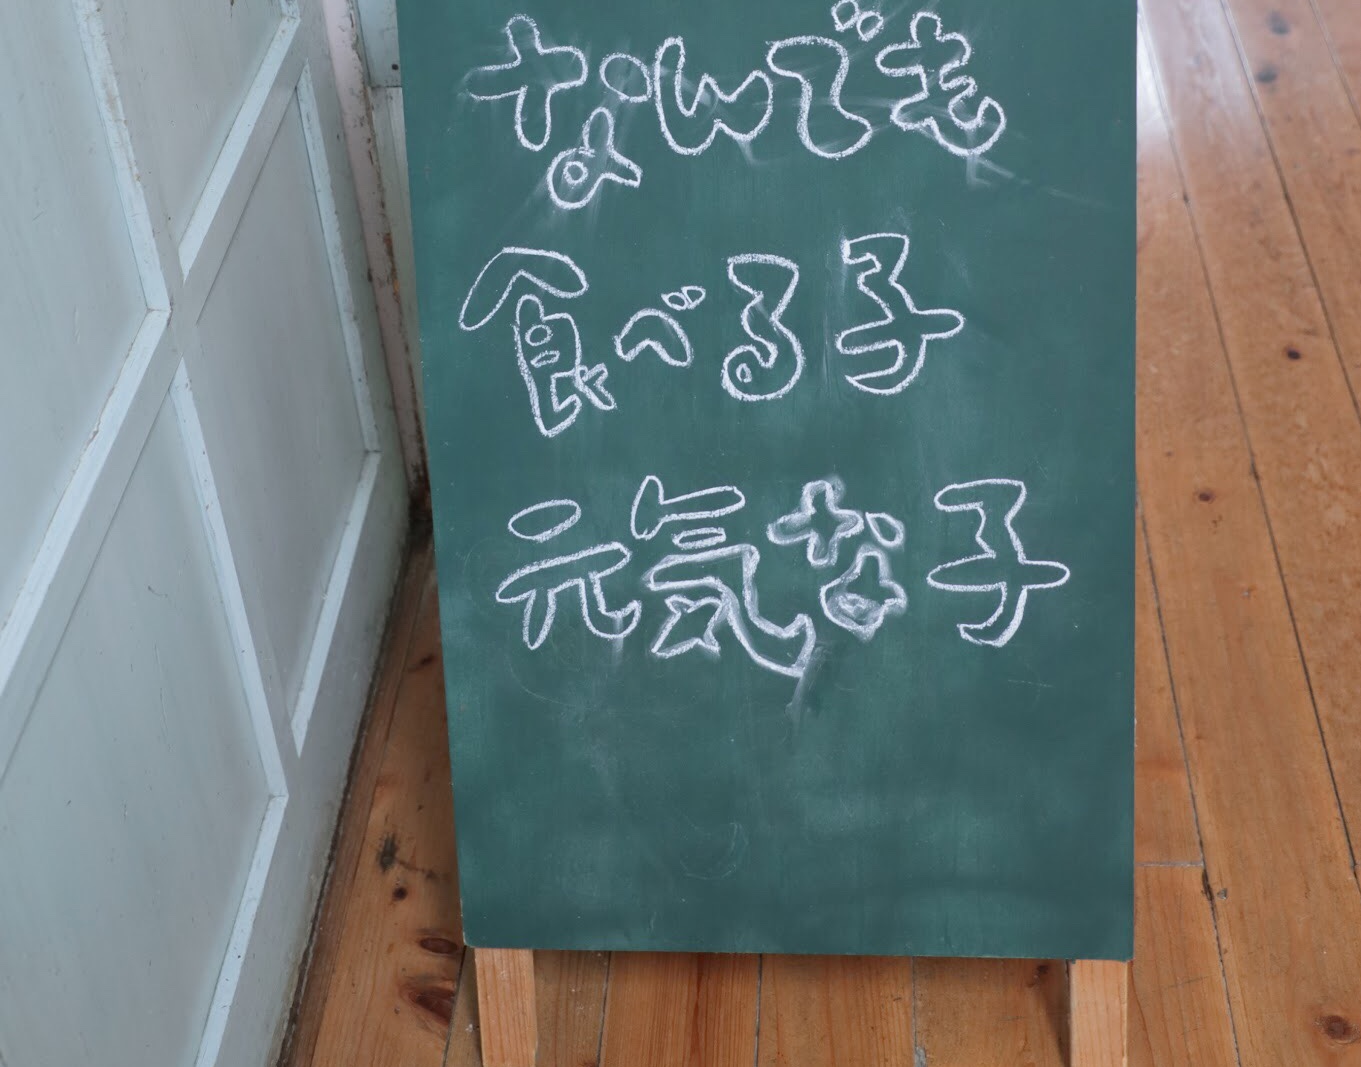 なんでも
食べる子
元気な子